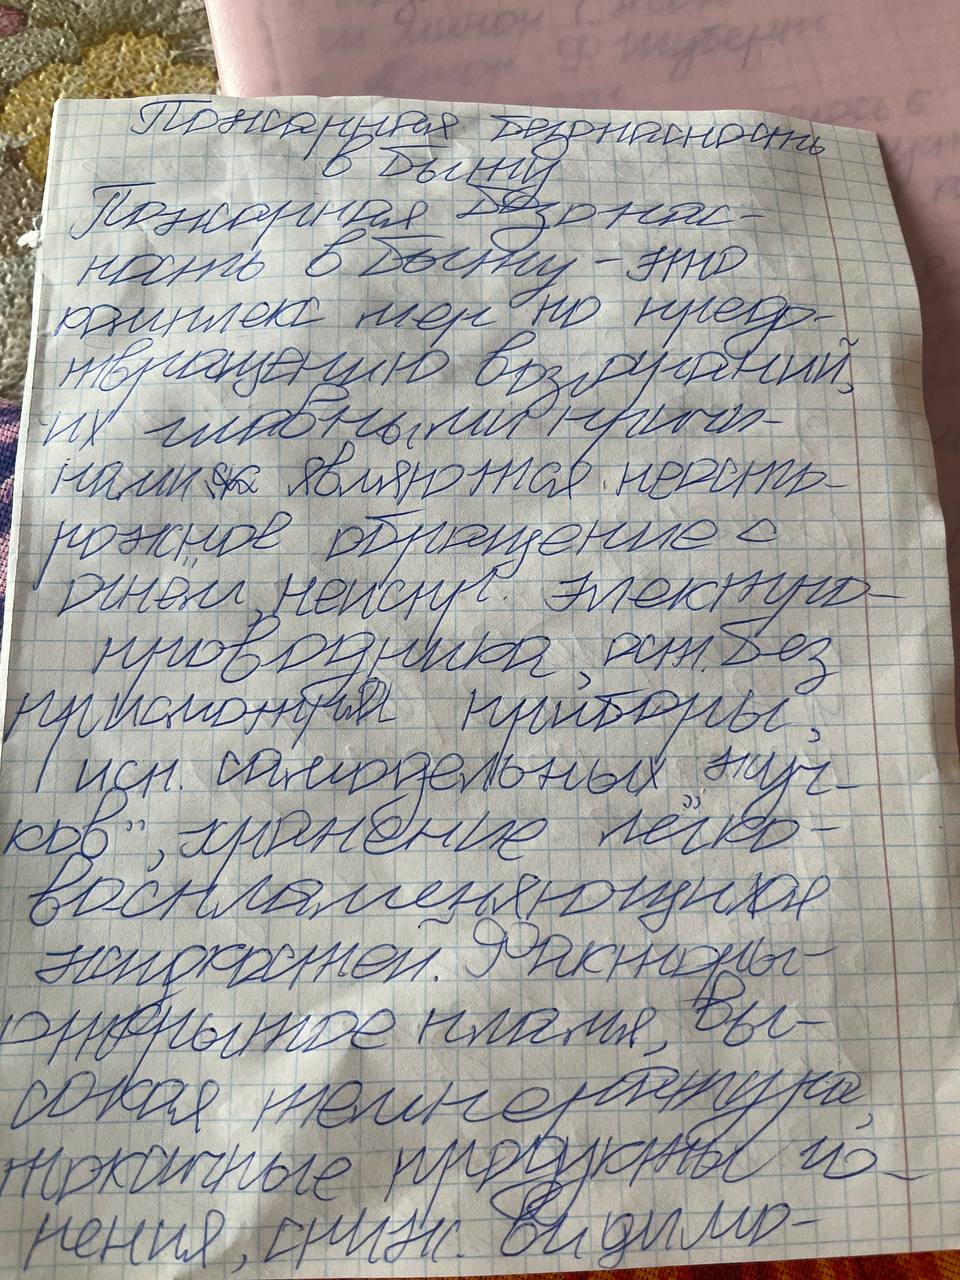 Пожарная безопасность
в быту
Пожарная безопас-
ность в быту - это
комплекс мер по пред-
твращению возгораний,
их главными причи-
нами являются неосто-
рожное обращение с
огнём, неиспр. электро-
проводника, ост. без
присмотра приборы,
исп. самодельных "жуч-
ков", хранение легко-
воспламеняющихся
жидкостей. Факторы-
открытое пламя, вы-
сокая температура,
токсичные продукты го-
рения, сниж. видимо-